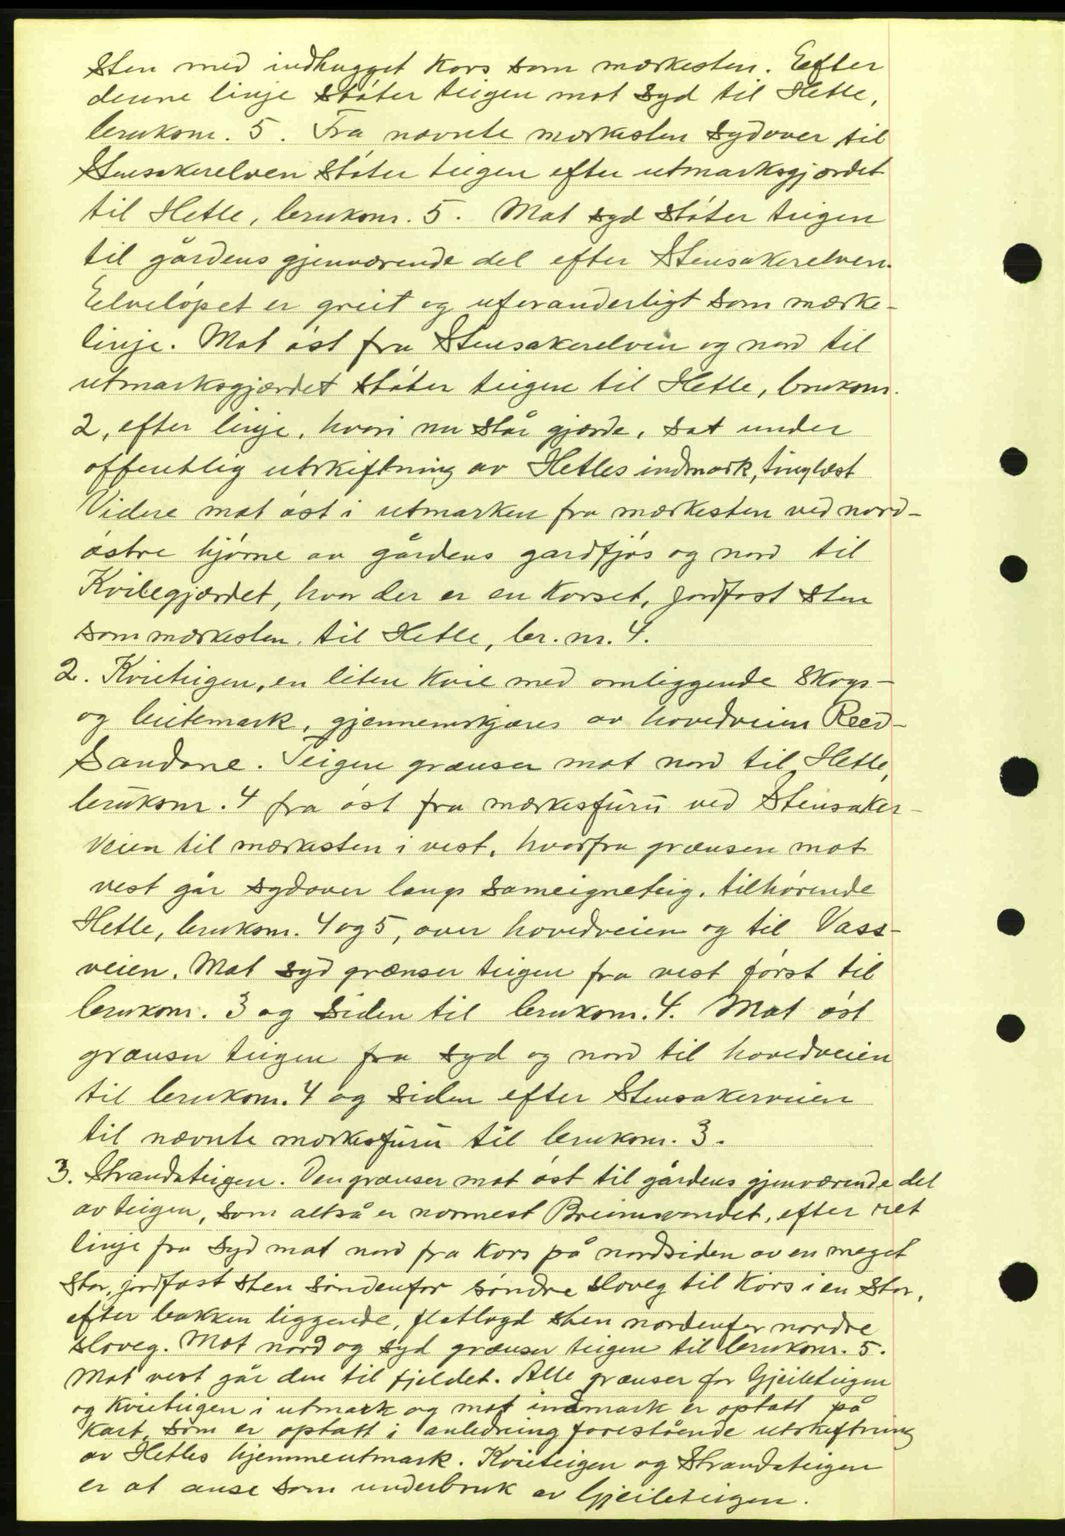 Sten med indhugget kors som merkesten. Eefter
denne linje støter teigen mot syd til Hetle,
bruksnr. 5. Fra nævnte merkesten sydover til
Stensakerelven støter teigen efter utmarksgjærdet
til Hetle, bruksnr. 5. Mot syd støter teigen
til gårdens gjenværende del efter Stensakerelven.
Eelveløpet er greit og uforanderligt som mærke-
linje. Mot øst fra Stensakerelven og nord til
utmarksgjærdet støter teigen til Hetle, bruksnr.
2, efter linje, hvori nu står gjærde, sat under
offentlig utskiftning av Hetles indmark, tinglæst
Videre mot øst i utmarken fra mærkesten ved nord-
østre hjørne av gårdens gardfjøs og nord til
Kvilegjærdet, hvor der er en korset, jordfast sten
som mærkesten, til Hetle, br. nr. 4.
2. Kvieteigen, en liten kvie med omliggende skogs-
og beitemark, gjennemskjæres av hovedveien Reed-
Sandane. Teigen grænser mot nord til Hetle,
bruksnr. 4 fra øst fra mærkesfuru ved Stensaker-
veien til mærkesten i vest, hvorfra grænsen mot
vest går sydover langs sameigneteig, tilhørende
Hetle, bruksnr. 4 og 5, over hovedveien og til Vass-
veien. Mot syd grænser teigen fra vest først til
bruksnr. 3 og siden til bruksnr. 4. Mot øst
grænser teigen fra syd og nord til hovedveien
til bruksnr. 4 og siden efter Stensakerveien
til nævnte merkesfuru til bruksnr. 3.
3. Strandateigen. Den grænser mot øst til gårdens gjenværende del
av teigen, som altså er nærmest Breimsvandet, efter ret
linje fra syd mot nord fra kors på nordsiden av en meget
stor, jordfast sten søndenfor søndre sloveg til kors i en stor,
efter bakken liggende, flatlagd sten nordenfor nordre
sloveg. Mot nord og syd grænser teigen til bruksnr. 5.
Mot vest går den til fjeldet. Alle grænser for Gjeileteigen
og Kvieteigen i utmark og mot indmark er optatt på
kart, som er optatt i anledning forestående utskiftning
av Hetles hjemmeutmark. Kvieteigen og Strandateigen
er at anse som underbruk av Gjeileteigen.